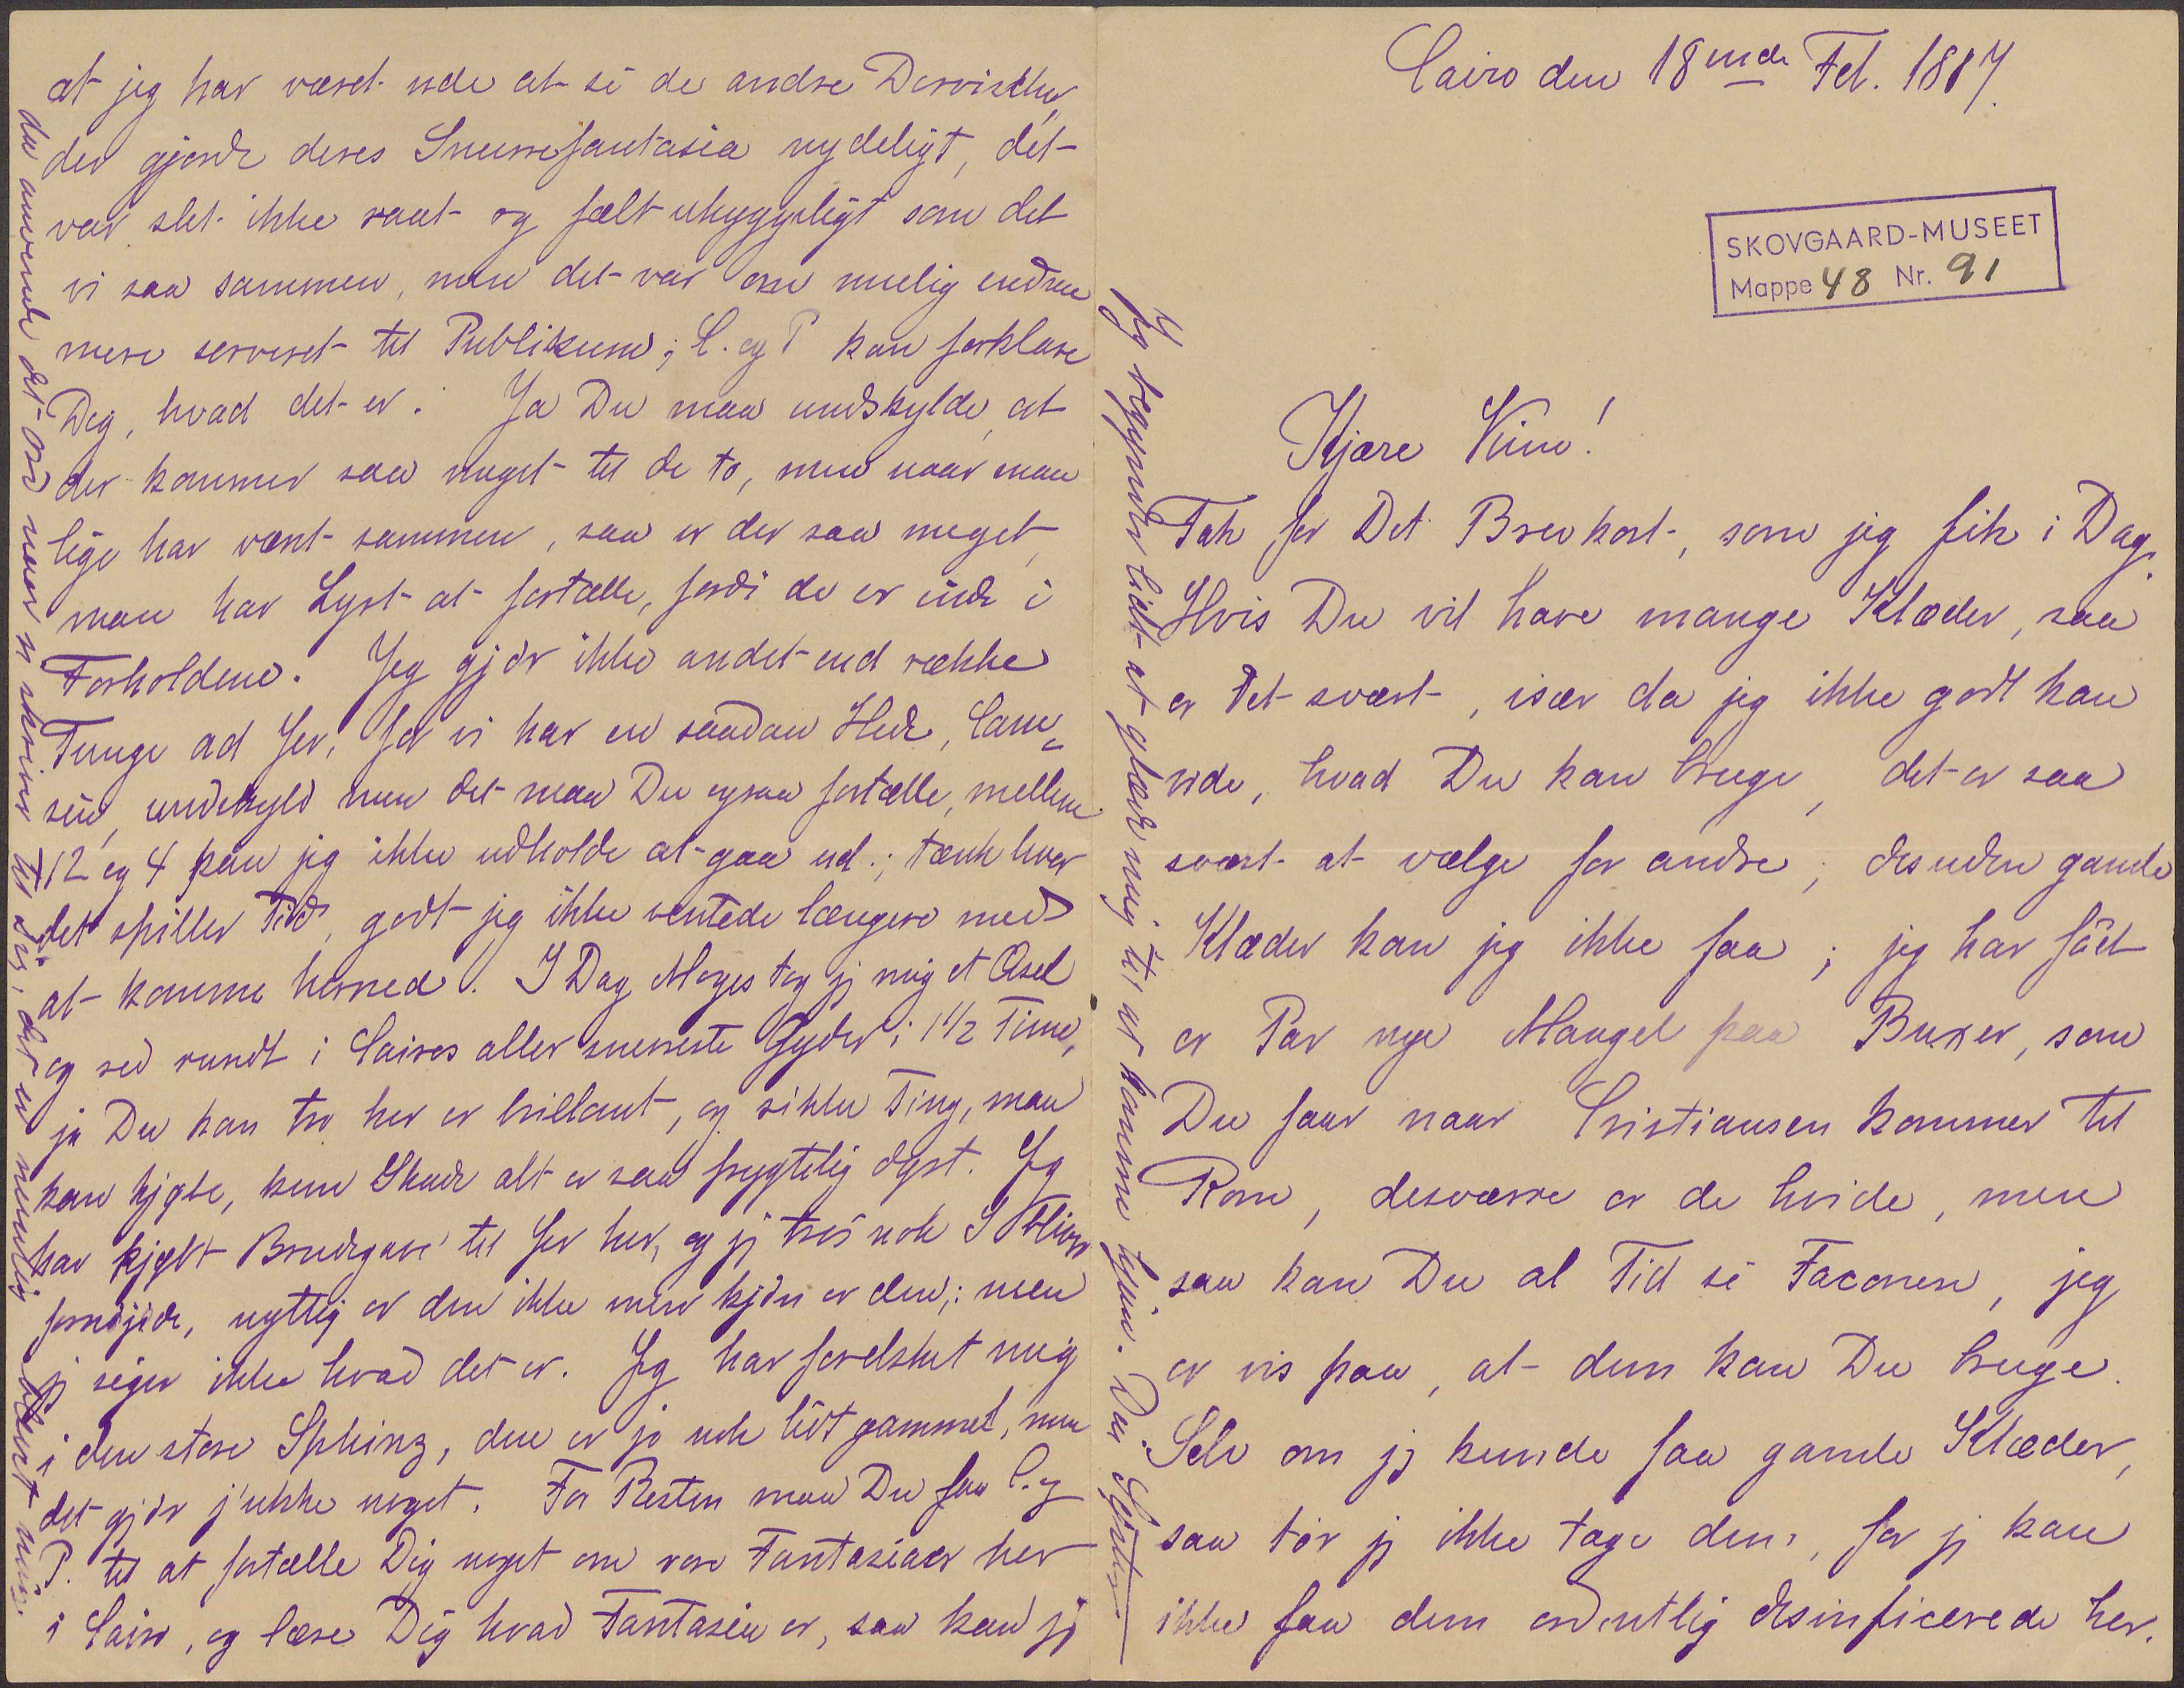 Cairo den 18nde Feb. 1887.
SKOVGAARD-MUSEET
Mappe 48 Nr. 91
Kjære Vium!
Tak for Dit Brevkort, som jeg fik i Dag.
Hvis Du vil have mange Klæder, saa
er det svært, især da jeg ikke godt kan
vide, hvad Du kan bruge, det er saa
svært at vælge for andre; desuden gamle
Klæder kan jeg ikke faa; jeg har fået
er Par nye Mangel paa Buxer, som
Du faar naar Cristiansen kommer til
Rom, desværre er de hvide, men
saa kan Du al Tid se Faconen, jeg
er vis paa, at dem kan Du bruge.
Selv om jeg kunde faa gamle Klæder,
saa tør jeg ikke tage dem, for jeg kan
ikke faa dem ordentlig desinficerede her.
Jeg begynder lidt at glæde mig til at komme hjem. Din
at jeg har været ude at se de andre Dervischer,
der gjorde deres Snurrefantasia nydeligt, det
var slet ikke raat og fælt uhyggeligt som det
vi saa sammen, men det var om mulig endnu
mere serveret til Publikum; C. og P kan forklare
Dig, hvad det er. Ja Du maa undskylde, at
der kommer saa meget til de to, men naar man
lige har vært sammen, saa er der saa meget,
man har Lyst at fortælle, fordi de er inde i
Forholdene. Jeg gjør ikke andet end række
Tunge ad Jer, for vi har en saadan Hede, Cam-
sin, undskyld men det maa Du ogsaa fortælle, mellem
12 og 4 kan jeg ikke udholde at gaa ud; tænk hver
det spiller Tid, godt jeg ikke ventede længere med
at komme herned. I Dag Morges tog jeg mig et Æsel
og red rundt i Cairos aller snevreste Gyder i 1 1/2 Time,
ja Du kan tro her er brillant, og sikke Ting, man
kan kjøbe, kun Skade alt er saa frygtelig dyrt. Jeg
har kjøbt Brudegave til Jer her, og jeg tror nok I bliver
fornøjede, nyttig er den ikke men kjøn er den; men
jeg siger ikke hvad det er. Jeg har forelsket mig
i den store Sphinx, den er jo nok lidt gammel, men
det gjør j'ukke noget. For Resten maa Du faa C. og
P. til at fortælle Dig noget om vore Fantasiaer her
i Cairo, og lære Dig hvad Fantasia er, saa kan jeg
da anvende det Ord naar vi skriver til Dig, det er nemlig